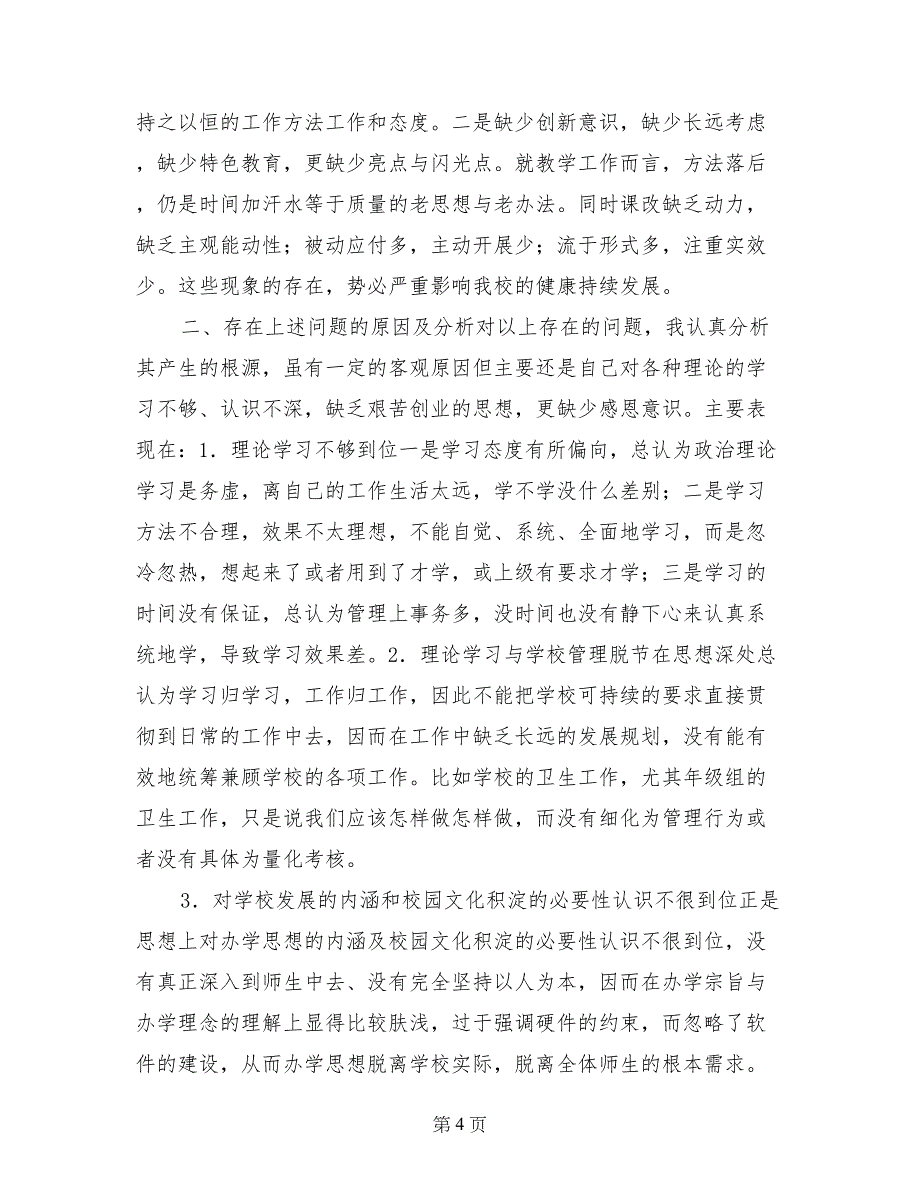 持之以恒的工作方法工作和态度。二是缺少创新意识，缺少长远考虑
，缺少特色教育，更缺少亮点与闪光点。就教学工作而言，方法落后
，仍是时间加汗水等于质量的老思想与老办法。同时课改缺乏动力，
缺乏主观能动性；被动应付多，主动开展少；流于形式多，注重实效
少。这些现象的存在，势必严重影响我校的健康持续发展。
二、存在上述问题的原因及分析对以上存在的问题，我认真分析
其产生的根源，虽有一定的客观原因但主要还是自己对各种理论的学
习不够、认识不深，缺乏艰苦创业的思想，更缺少感恩意识。主要表
现在：1．理论学习不够到位一是学习态度有所偏向，总认为政治理论
学习是务虚，离自己的工作生活太远，学不学没什么差别；二是学习
方法不合理，效果不太理想，不能自觉、系统、全面地学习，而是忽
冷忽热，想起来了或者用到了才学，或上级有要求才学；三是学习的
时间没有保证，总认为管理上事务多，没时间也没有静下心来认真系
统地学，导致学习效果差。2．理论学习与学校管理脱节在思想深处总
认为学习归学习，工作归工作，因此不能把学校可持续的要求直接贯
彻到日常的工作中去，因而在工作中缺乏长远的发展规划，没有能有
效地统筹兼顾学校的各项工作。比如学校的卫生工作，尤其年级组的
卫生工作，只是说我们应该怎样做怎样做，而没有细化为管理行为或
者没有具体为量化考核。
3．对学校发展的内涵和校园文化积淀的必要性认识不很到位正是
思想上对办学思想的内涵及校园文化积淀的必要性认识不很到位，没
有真正深入到师生中去、没有完全坚持以人为本，因而在办学宗旨与
办学理念的理解上显得比较肤浅，过于强调硬件的约束，而忽略了软
件的建设，从而办学思想脱离学校实际，脱离全体师生的根本需求。
第 4 页